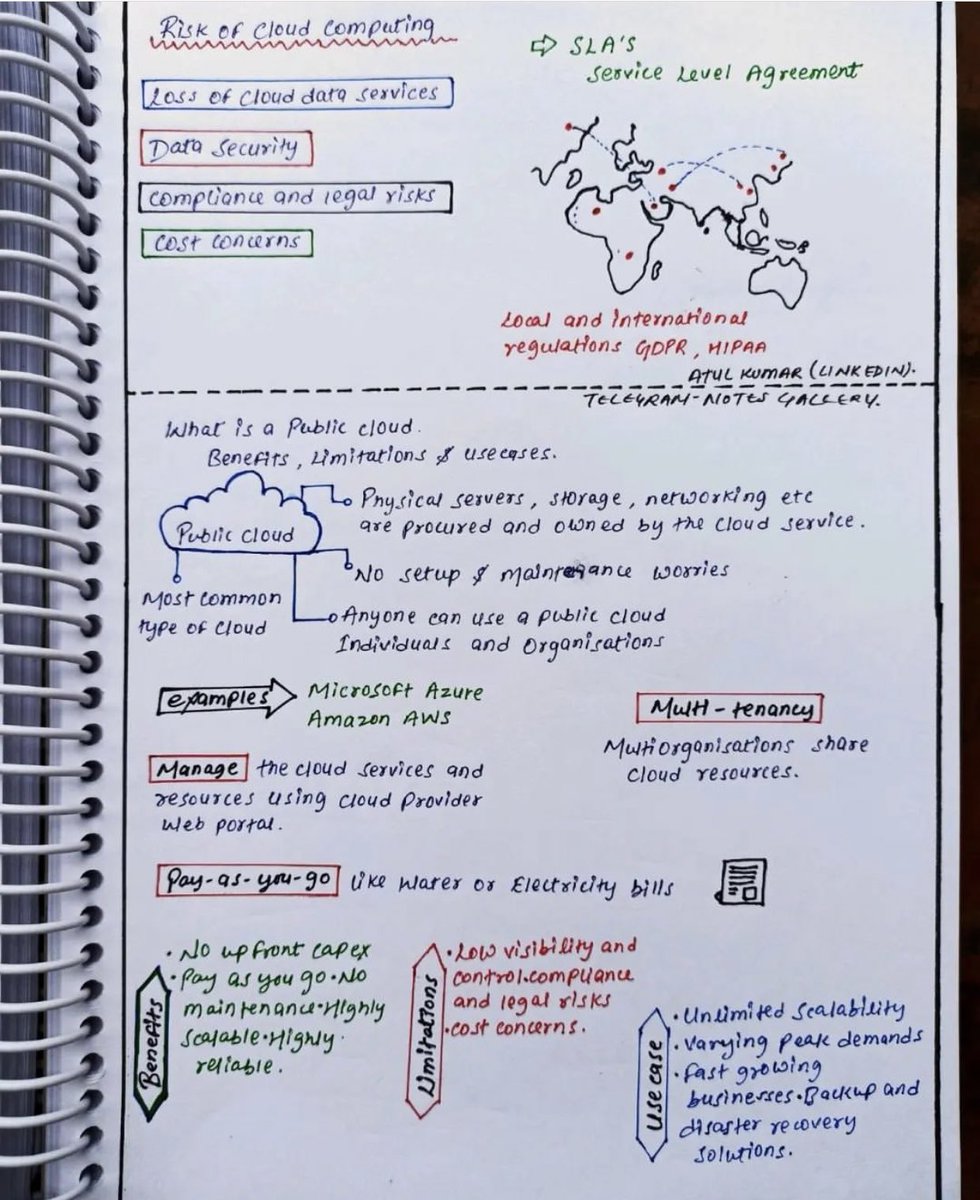 Risk of Cloud Computing
Loss of cloud data services
Data security
compliance and legal risks
cost concerns
⇨ SLA'S
Service Level Agreement
Local and international
regulations GDPR, HIPAA
ATUL KUMAR (LINKEDIN).
TELEGRAM-NOTES GALLERY.
What is a Public cloud.
Benefits, Limitations & usecases.
Public cloud
Physical servers, storage, networking etc
are procured and owned by the cloud service.
No setup & maintenance worries
Most common
type of cloud
Anyone can use a public cloud
Individuals and Organisations
examples
Microsoft Azure
Amazon AWS
Multi-tenancy
Multiorganisations share
cloud resources.
Manage the cloud services and
resources using cloud Provider
Web portal.
Pay-as-you-go like water or Electricity bills
Benefits
• No upfront capex
• Pay as you go • No
maintenance • Highly
scalable • Highly
reliable.
Limitations
• Low visibility and
control. compliance
and legal risks
• cost concerns.
Use case
• Unlimited scalability
• Varying peak demands
• Fast growing
businesses • Backup and
disaster recovery
solutions.